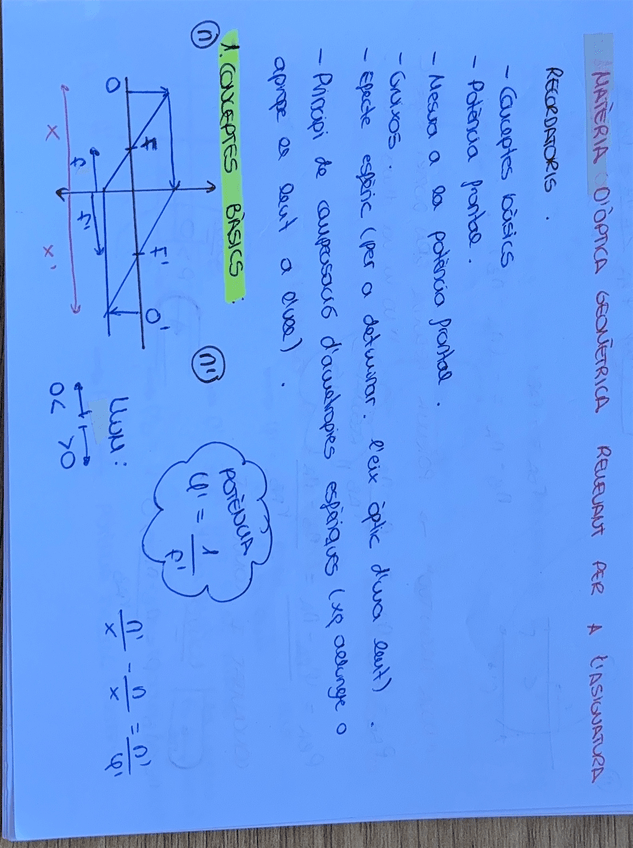 MATÈRIA D'ÒPTICA GEOMÈTRICA RELLEVANT PER A L'ASIGNATURA
RECORDATORIS.
- Conceptes bàsics
- Potència frontal.
- Mesura a la potència frontal.
- Gruixos.
- Efecte esfèric (per a determinar l'eix òptic d'una lent).
- Principi de compensació d'ametropies esfèriques (xq allunge o
aprope la lent a l'ull).
1. CONCEPTES BÀSICS:
(n) (n')
O F F' O'
f f'
x x'
POTÈNCIA
φ' = 1/f'
LLUM:
0< >0
n'/x - n/x = n'/φ'